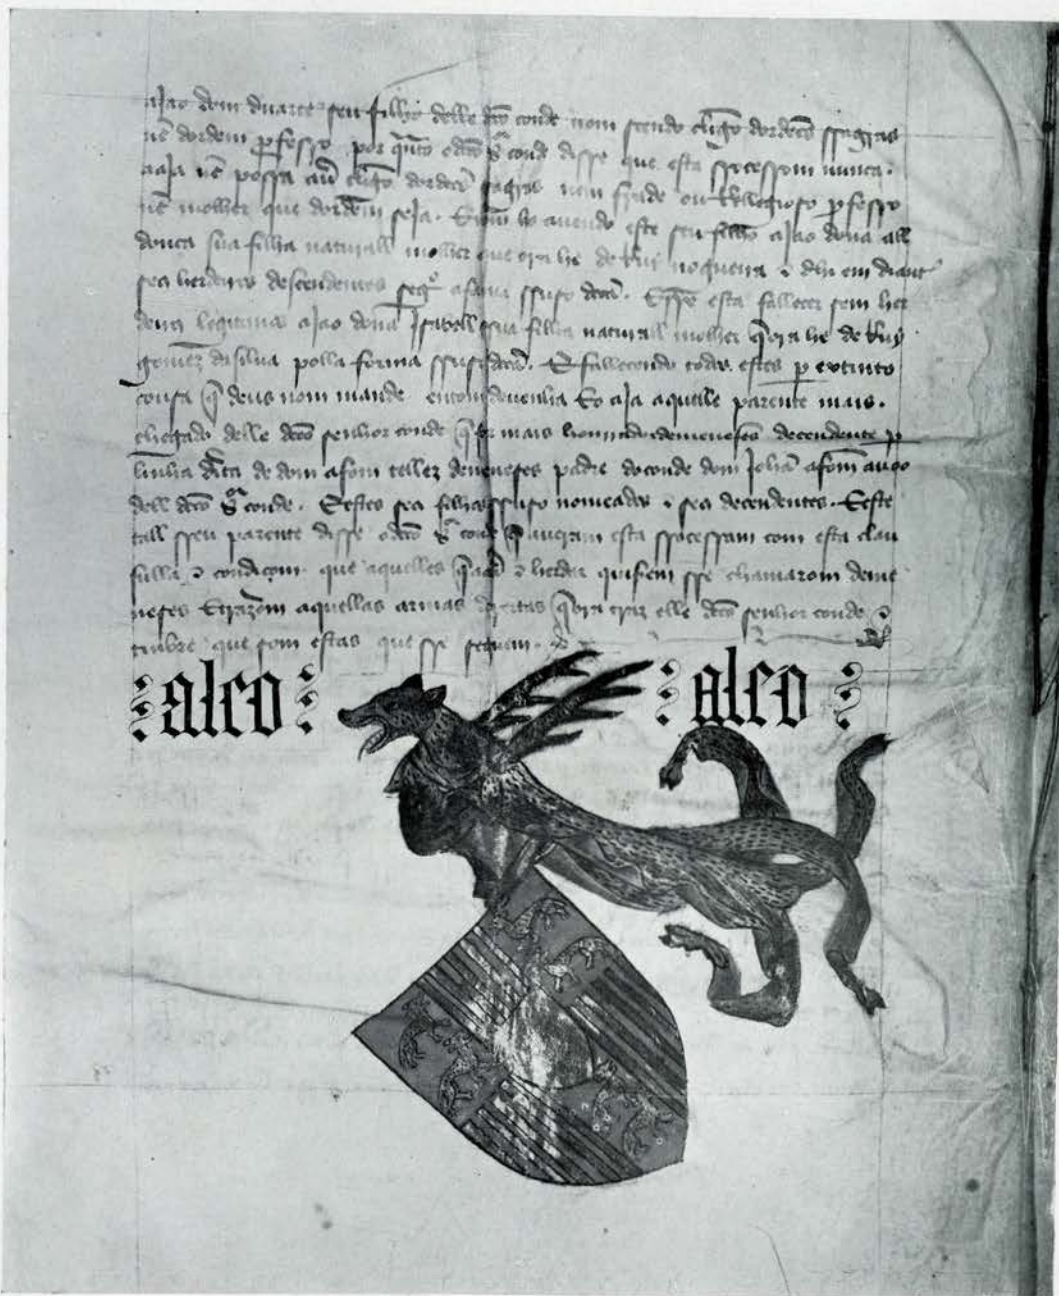 ajão dom duarte seu filho delle dcõ conde nom seendo clligo dordeẽs ssagras
nẽ dordem pfesso por qnto o dcõ sr conde disse que esta ssocessom nunca.
aaja nẽ possa auer clligo dordeẽs sagras nem frade ou Relligioso pfesso
nẽ molher que dordem seja. E nom ho auendo este seu filho ajão dona all
donça sua filha naturall molher que ora he de Ruy nogueira e dhi em diant
seus herdeiros descendentes segº a forma ssuso dcã. E sse esta fallecer sem her
deiros legitimos ajão dona Isabell sua filha naturall molher q ora he de Ruy
gomez da silua polla forma ssuso dcã. E fallecendo todos estes p extinto
cousa q deus nom mande entom deuenha ho aja aquelle parente mais.
chegado delle dcõ senhor conde q for mais honrrado de meneses decendente p
linha dcta de dom afom tellez de meneses padre do conde dom Johã afom auoo
dell dcõ sr conde. E estes seus filhos ssuso nomeados e seus decendentes. E este
tall sseu parente disse o dcõ sr conde q aueram esta ssocessam com esta clau
sulla e condiçom que aquelles q a de herdar quiserem sse chamarom de me
neses E trazom aquellas armas dereitas q ora traz elle dcõ senhor conde e
timbre que som estas que sse seguem.
: alco : : alco :